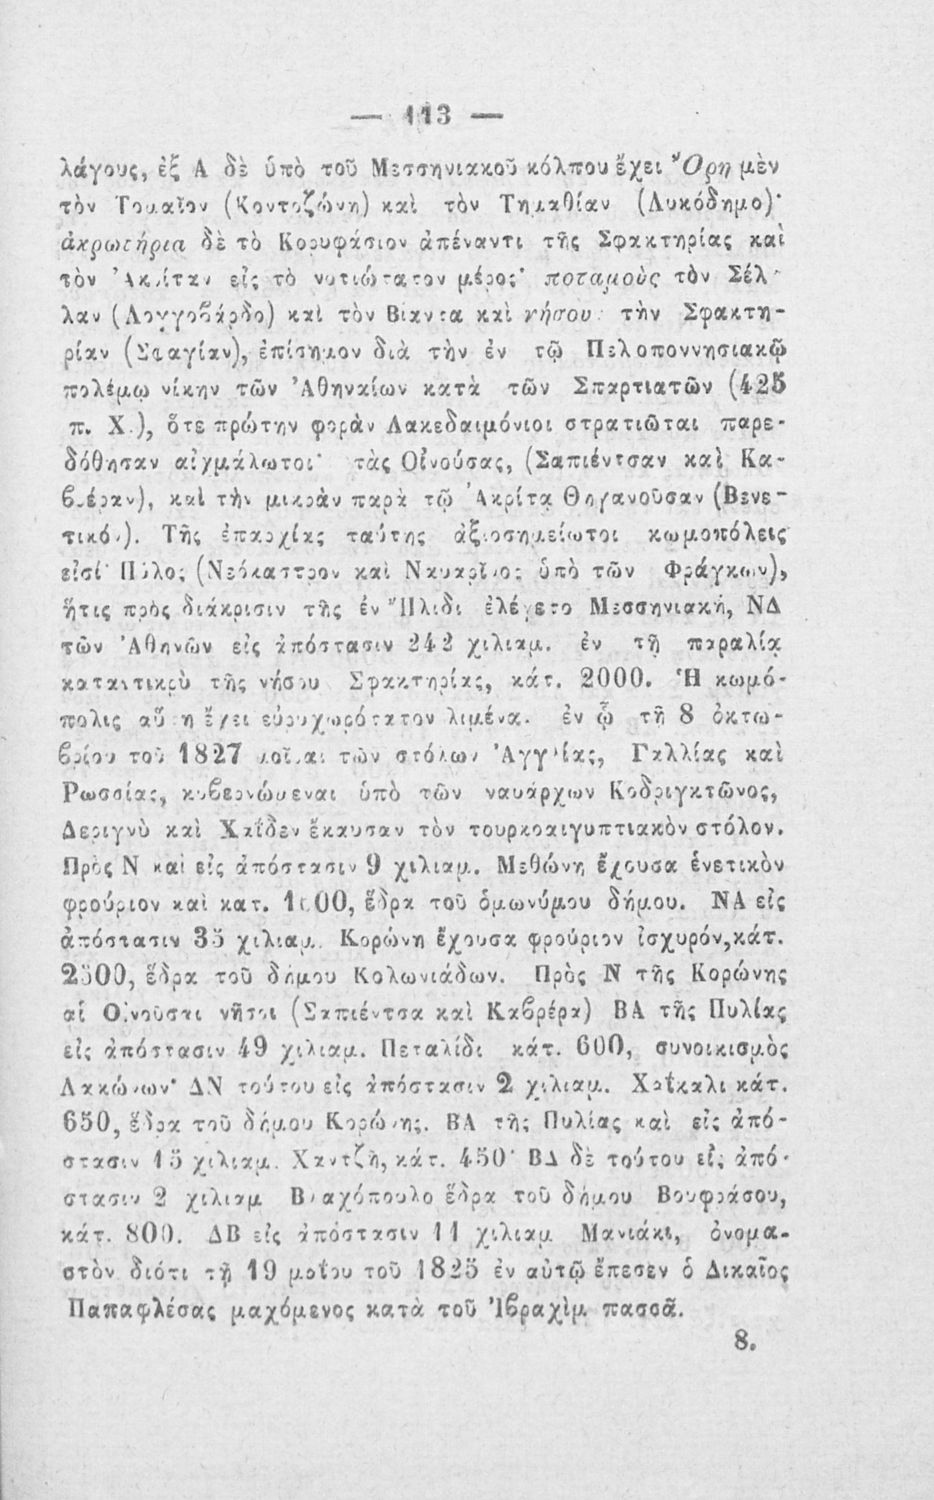 — 113 —
λάγους, ἐξ Α δὲ ὑπὸ τοῦ Μεσσηνιακοῦ κόλπου ἔχει Ὄρη μὲν
τὸν Τομαῖον (Κοντοζώνη) καὶ τὸν Τημαθίαν (Λυκόδημο)·
ἀκρωτήρια δὲ τὸ Κορυφάσιον ἀπέναντι τῆς Σφακτηρίας καὶ
τὸν Ἀκρίταν εἰς τὸ νοτιώτατον μέρος· ποταμοὺς τὸν Σέλ-
λαν (Λογγοβάρδο) καὶ τὸν Βίαντα καὶ νήσου· τὴν Σφακτη-
ρίαν (Σφαγίαν), ἐπίσημον διὰ τὴν ἐν τῷ Πελοποννησιακῷ
πολέμῳ νίκην τῶν Ἀθηναίων κατὰ τῶν Σπαρτιατῶν (425
π. Χ.), ὅτε πρώτην φορὰν Λακεδαιμόνιοι στρατιῶται παρε-
δόθησαν αἰχμάλωτοι· τὰς Οἰνούσας, (Σαπιέντσαν καὶ Κα-
βρέραν), καὶ τὴν μικρὰν παρὰ τῷ Ἀκρίτᾳ Θηγανοῦσαν (Βενε-
τικό). Τῆς ἐπαρχίας ταύτης ἀξιοσημείωτοι κωμοπόλεις
εἰσί· Πύλος (Νεόκαστρον καὶ Ναυαρῖνος ὑπὸ τῶν Φράγκων),
ἥτις πρὸς διάκρισιν τῆς ἐν Ἤλιδι ἐλέγετο Μεσσηνιακή, ΝΔ
τῶν Ἀθηνῶν εἰς ἀπόστασιν 242 χιλιαμ. ἐν τῇ παραλίᾳ
καταντικρὺ τῆς νήσου Σφακτηρίας, κάτ. 2000. Ἡ κωμό-
πολις αὕτη ἔχει εὐρυχωρότατον λιμένα. ἐν ᾧ τῇ 8 ὀκτω-
βρίου τοῦ 1827 μοῖραι τῶν στόλων Ἀγγλίας, Γαλλίας καὶ
Ρωσσίας, κυβερνώμεναι ὑπὸ τῶν ναυάρχων Κοδριγκτῶνος,
Δεριγνὺ καὶ Χαΐδεν ἔκαυσαν τὸν τουρκοαιγυπτιακὸν στόλον.
Πρὸς Ν καὶ εἰς ἀπόστασιν 9 χιλιαμ. Μεθώνη ἔχουσα ἑνετικὸν
φρούριον καὶ κατ. ἕδρα τοῦ ὁμωνύμου δήμου. ΝΑ εἰς
ἀπόστασιν 35 χιλιαμ. Κορώνη ἔχουσα φρούριον ἰσχυρόν,κάτ.
2500, ἕδρα τοῦ δήμου Κολωνιάδων. Πρὸς Ν τῆς Κορώνης
αἱ Οἰνοῦσαι νῆσοι (Σαπιέντσα καὶ Καβρέρα) ΒΑ τῆς Πυλίας
εἰς ἀπόστασιν 49 χιλιαμ. Πεταλίδι κάτ. 600, συνοικισμὸς
Λακώνων· ΔΝ τούτου εἰς ἀπόστασιν 2 χιλιαμ. Χαΐκαλι κάτ.
650, ἕδρα τοῦ δήμου Κορώνης. ΒΑ τῆς Πυλίας καὶ εἰς ἀπό-
στασιν 15 χιλιαμ. Χαντζῆ, κάτ. 450· ΒΔ δὲ τούτου εἰς ἀπό-
στασιν 2 χιλιαμ Βλαχόπουλο ἕδρα τοῦ δήμου Βουφράσου,
κάτ. 800. ΔΒ εἰς ἀπόστασιν 11 χιλιαμ Μανιάκι, ὀνομα-
στὸν διότι τῇ 19 μαΐου τοῦ 1825 ἐν αὐτῷ ἔπεσεν ὁ Δικαῖος
Παπαφλέσας μαχόμενος κατὰ τοῦ Ἰβραχὶμ πασσᾶ.
8.